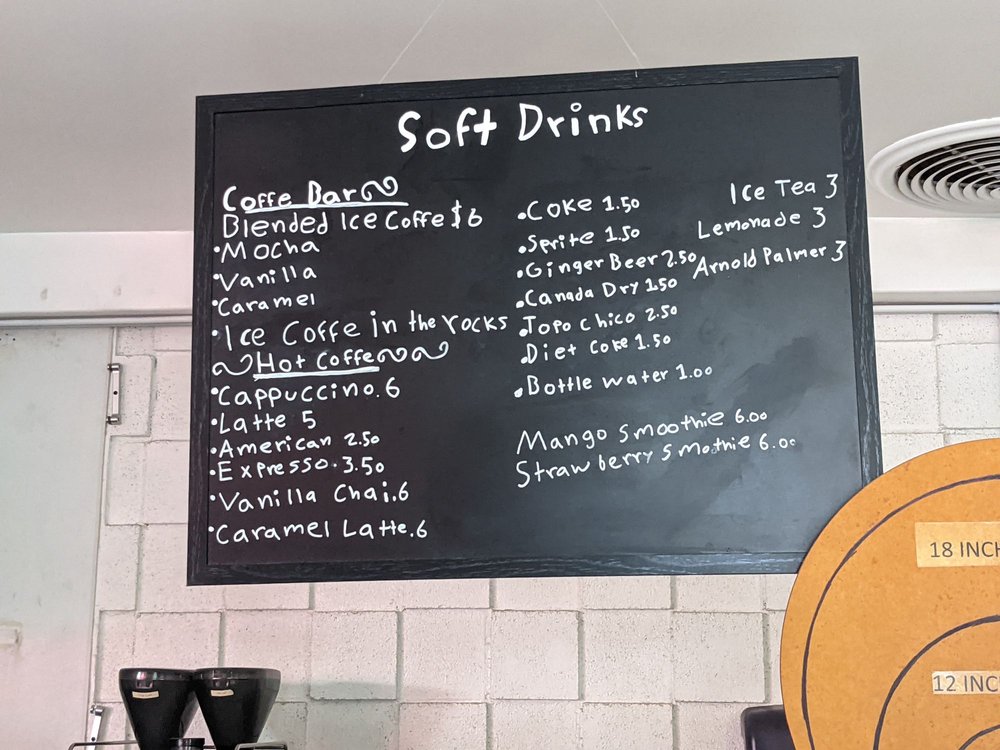 Soft Drinks
Coffe Bar
Blended Ice Coffe $6
•Mocha
•Vanilla
•Caramel
•Ice Coffe in the rocks
Hot Coffe
•Cappuccino.6
•Latte 5
•American 2.50
•Expresso.3.50
•Vanilla Chai.6
•Caramel Latte.6
•Coke 1.50
•Sprite 1.50
•Ginger Beer 2.50
•Canada Dry 1.50
•Topo Chico 2.50
•Diet Coke 1.50
•Bottle water 1.00
Mango Smoothie 6.00
Strawberry Smothie 6.00
Ice Tea 3
Lemonade 3
Arnold Palmer 3
18 INCH
12 INC